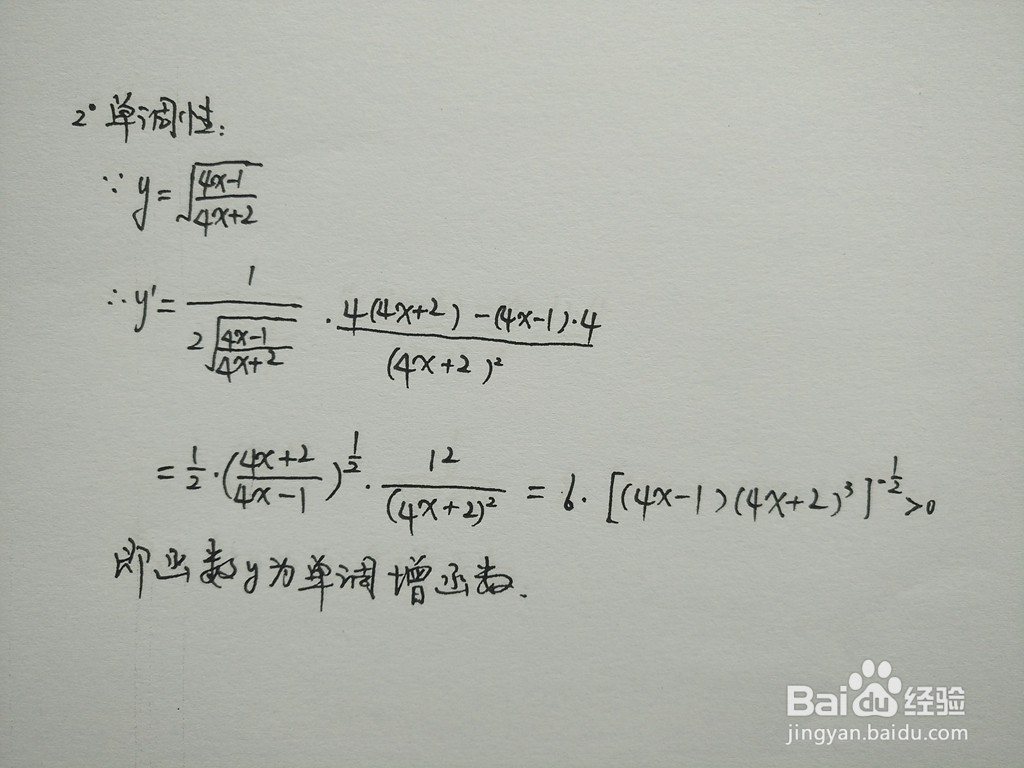 2° 单调性:
∵ y = √((4x-1)/(4x+2))
∴ y' = 1/(2√((4x-1)/(4x+2))) · (4(4x+2) - (4x-1)·4)/((4x+2)²)
= 1/2 · ((4x+2)/(4x-1))^(1/2) · 12/((4x+2)²) = 6 · [(4x-1)(4x+2)³]^(-1/2) >0
即函数y为单调增函数.
Bai 经验
jingyan.baidu.com